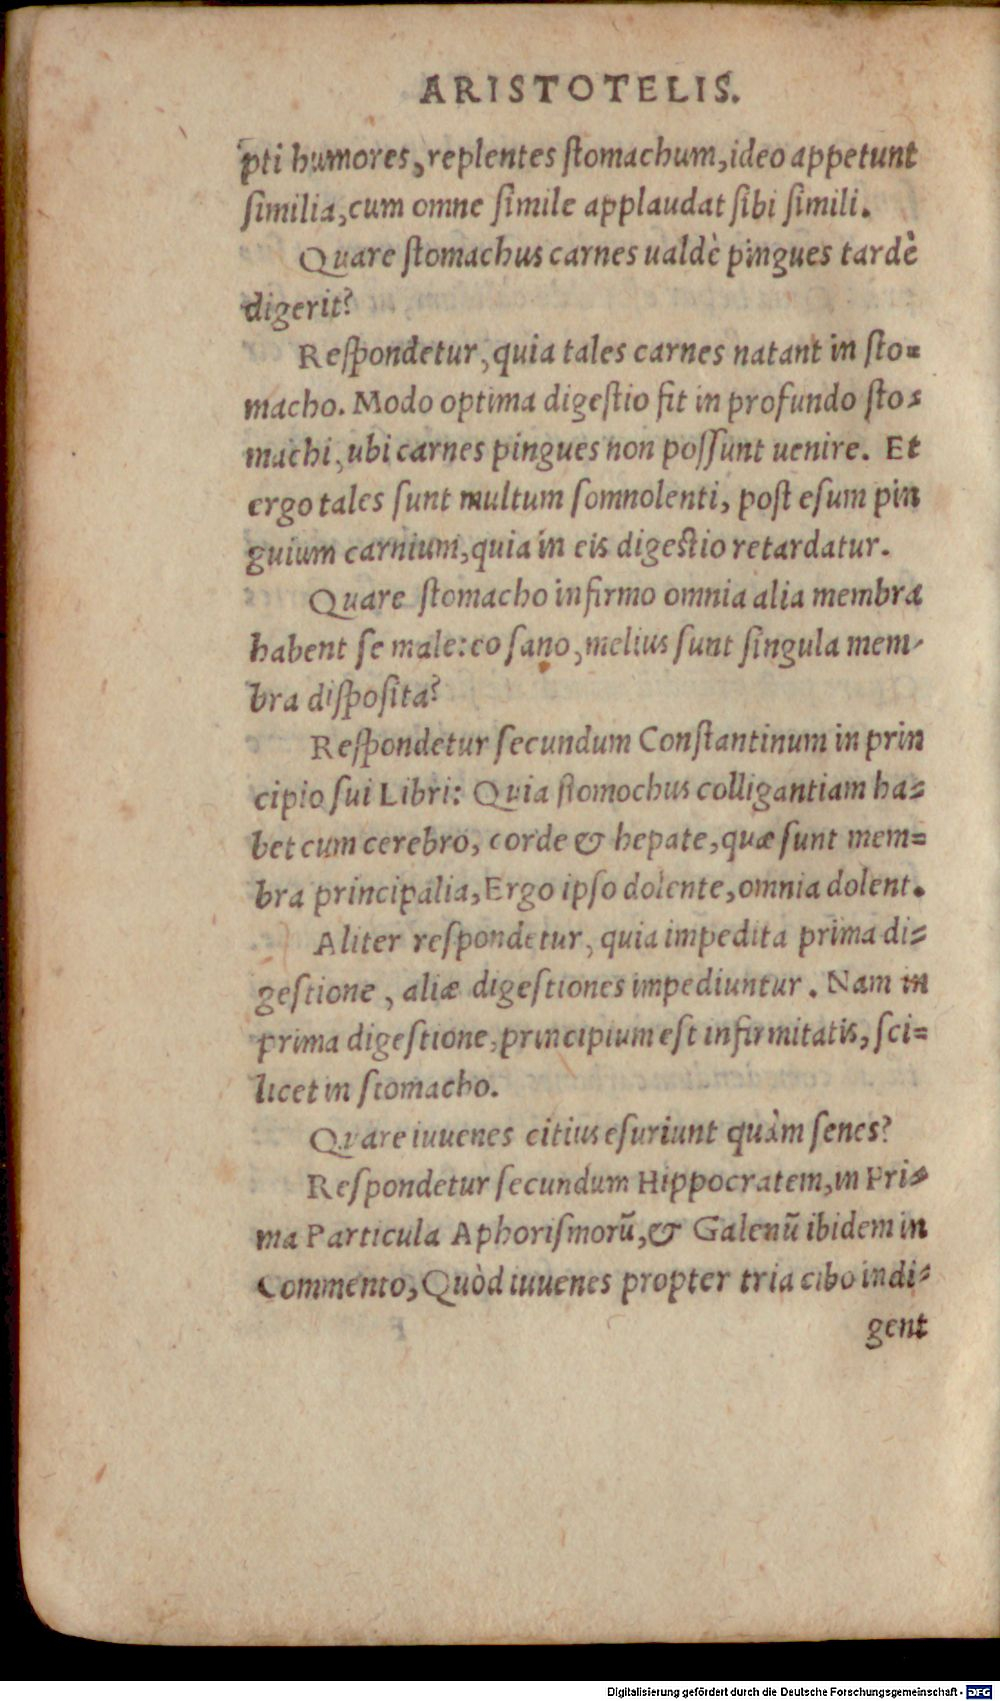 ARISTOTELIS.
pti humores, replentes ſtomachum, ideo appetunt
ſimilia, cum omne ſimile applaudat ſibi ſimili.
Quare ſtomachus carnes ualdè pingues tardè
digerit?
Reſpondetur, quia tales carnes natant in ſto=
macho. Modo optima digeſtio fit in profundo ſto=
machi, ubi carnes pingues non poſſunt uenire. Et
ergo tales ſunt multum ſomnolenti, poſt eſum pin
guium carnium, quia in eis digeſtio retardatur.
Quare ſtomacho infirmo omnia alia membra
habent ſe male: eo ſano, melius ſunt ſingula mem-
bra diſpoſita?
Reſpondetur ſecundum Conſtantinum in prin
cipio ſui Libri: Quia ſtomochus colligantiam ha=
bet cum cerebro, corde & hepate, quæ ſunt mem=
bra principalia, Ergo ipſo dolente, omnia dolent.
Aliter reſpondetur, quia impedita prima di=
geſtione, aliæ digeſtiones impediuntur. Nam in
prima digeſtione, principium eſt infirmitatis, ſci=
licet in ſtomacho.
Quare iuuenes citius eſuriunt quàm ſenes?
Reſpondetur ſecundum Hippocratem, in Pri=
ma Particula Aphoriſmorũ, & Galenũ ibidem in
Commento, Quòd iuuenes propter tria cibo indi=
gent
Digitalisierung gefördert durch die Deutsche Forschungsgemeinschaft - DFG